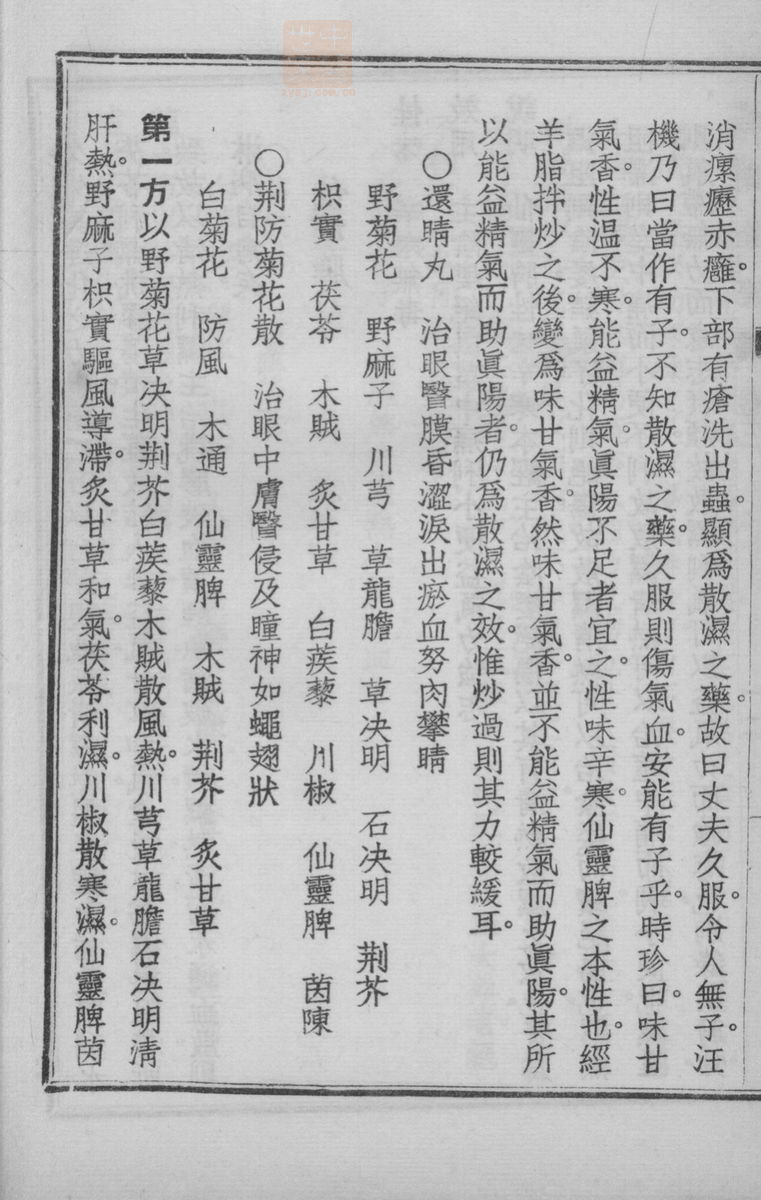 消瘰癧赤癰。下部有瘡洗出蟲。顯爲散濕之藥。故曰丈夫久服。令人無子。汪
機乃曰當作有子。不知散濕之藥。久服則傷氣血。安能有子乎。時珍曰。味甘
氣香。性温不寒。能益精氣。眞陽不足者宜之。性味辛寒。仙靈脾之本性也。經
羊脂拌炒之後。變爲味甘氣香。然味甘氣香。並不能益精氣而助眞陽。其所
以能益精氣而助眞陽者。仍爲散濕之效。惟炒過則其力較緩耳。
○還睛丸 治眼瞖膜昏澀淚出瘀血努肉攀睛
野菊花 野麻子 川芎 草龍膽 草决明 石决明 荆芥
枳實 茯苓 木賊 炙甘草 白蒺藜 川椒 仙靈脾 茵陳
○荆防菊花散 治眼中膚瞖侵及瞳神如蠅翅狀
白菊花 防風 木通 仙靈脾 木賊 荆芥 炙甘草
第一方以野菊花草决明荆芥白蒺藜木賊散風熱。川芎草龍膽石决明淸
肝熱。野麻子枳實驅風導滯。炙甘草和氣。茯苓利濕。川椒散寒濕。仙靈脾茵